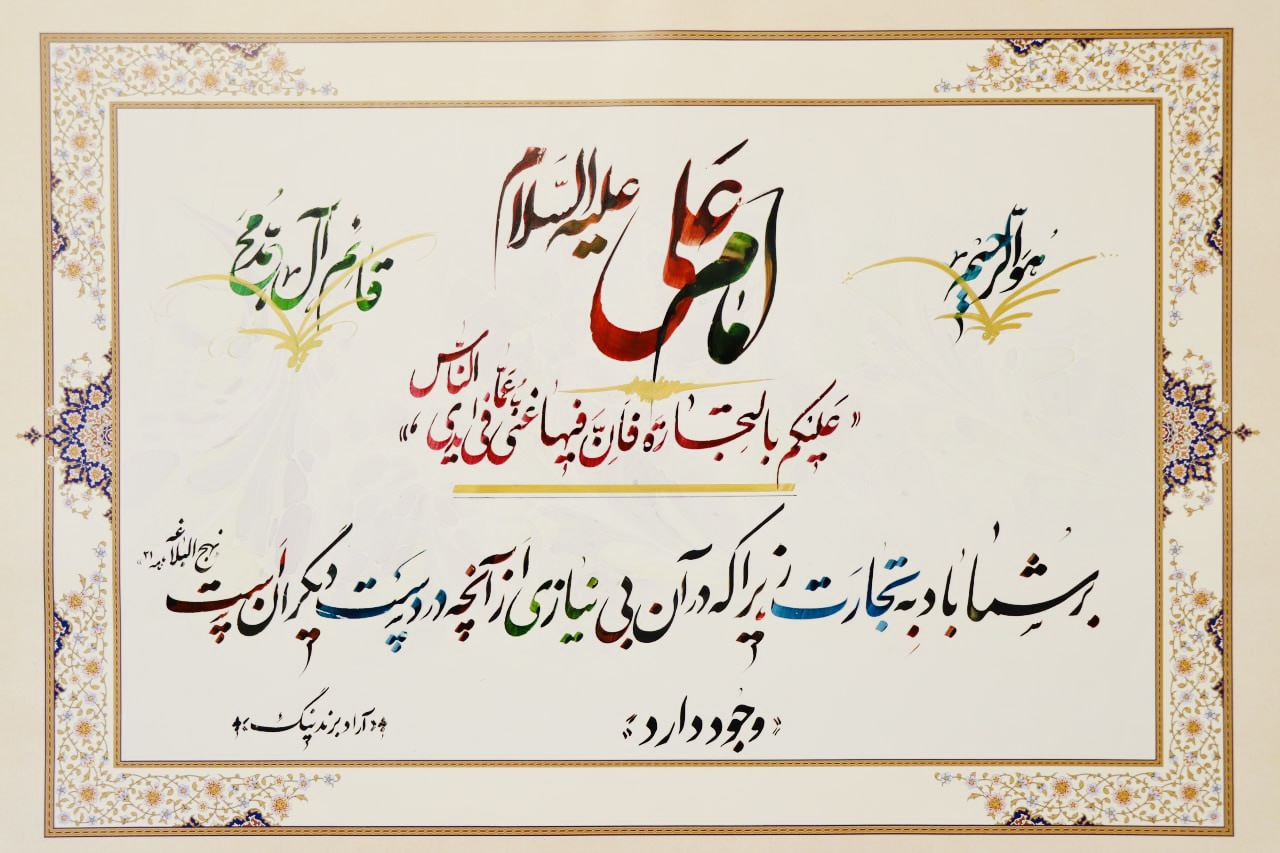 هو الرحیم
امام علی علیه السلام
قائم آل محمد
«علیکم بالتجارة فإنّ فیها غنی عمّا فی ایدی الناس»
بر شما باد به تجارت زیرا که در آن بی نیازی از آنچه در دست دیگران است
نهج البلاغه
«وجود دارد»
«آراد برندینگ»